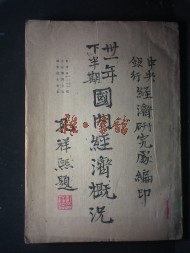 中央
銀行 經濟研究處編印
卅一年
下半期 國內經濟概況
孔祥熙題